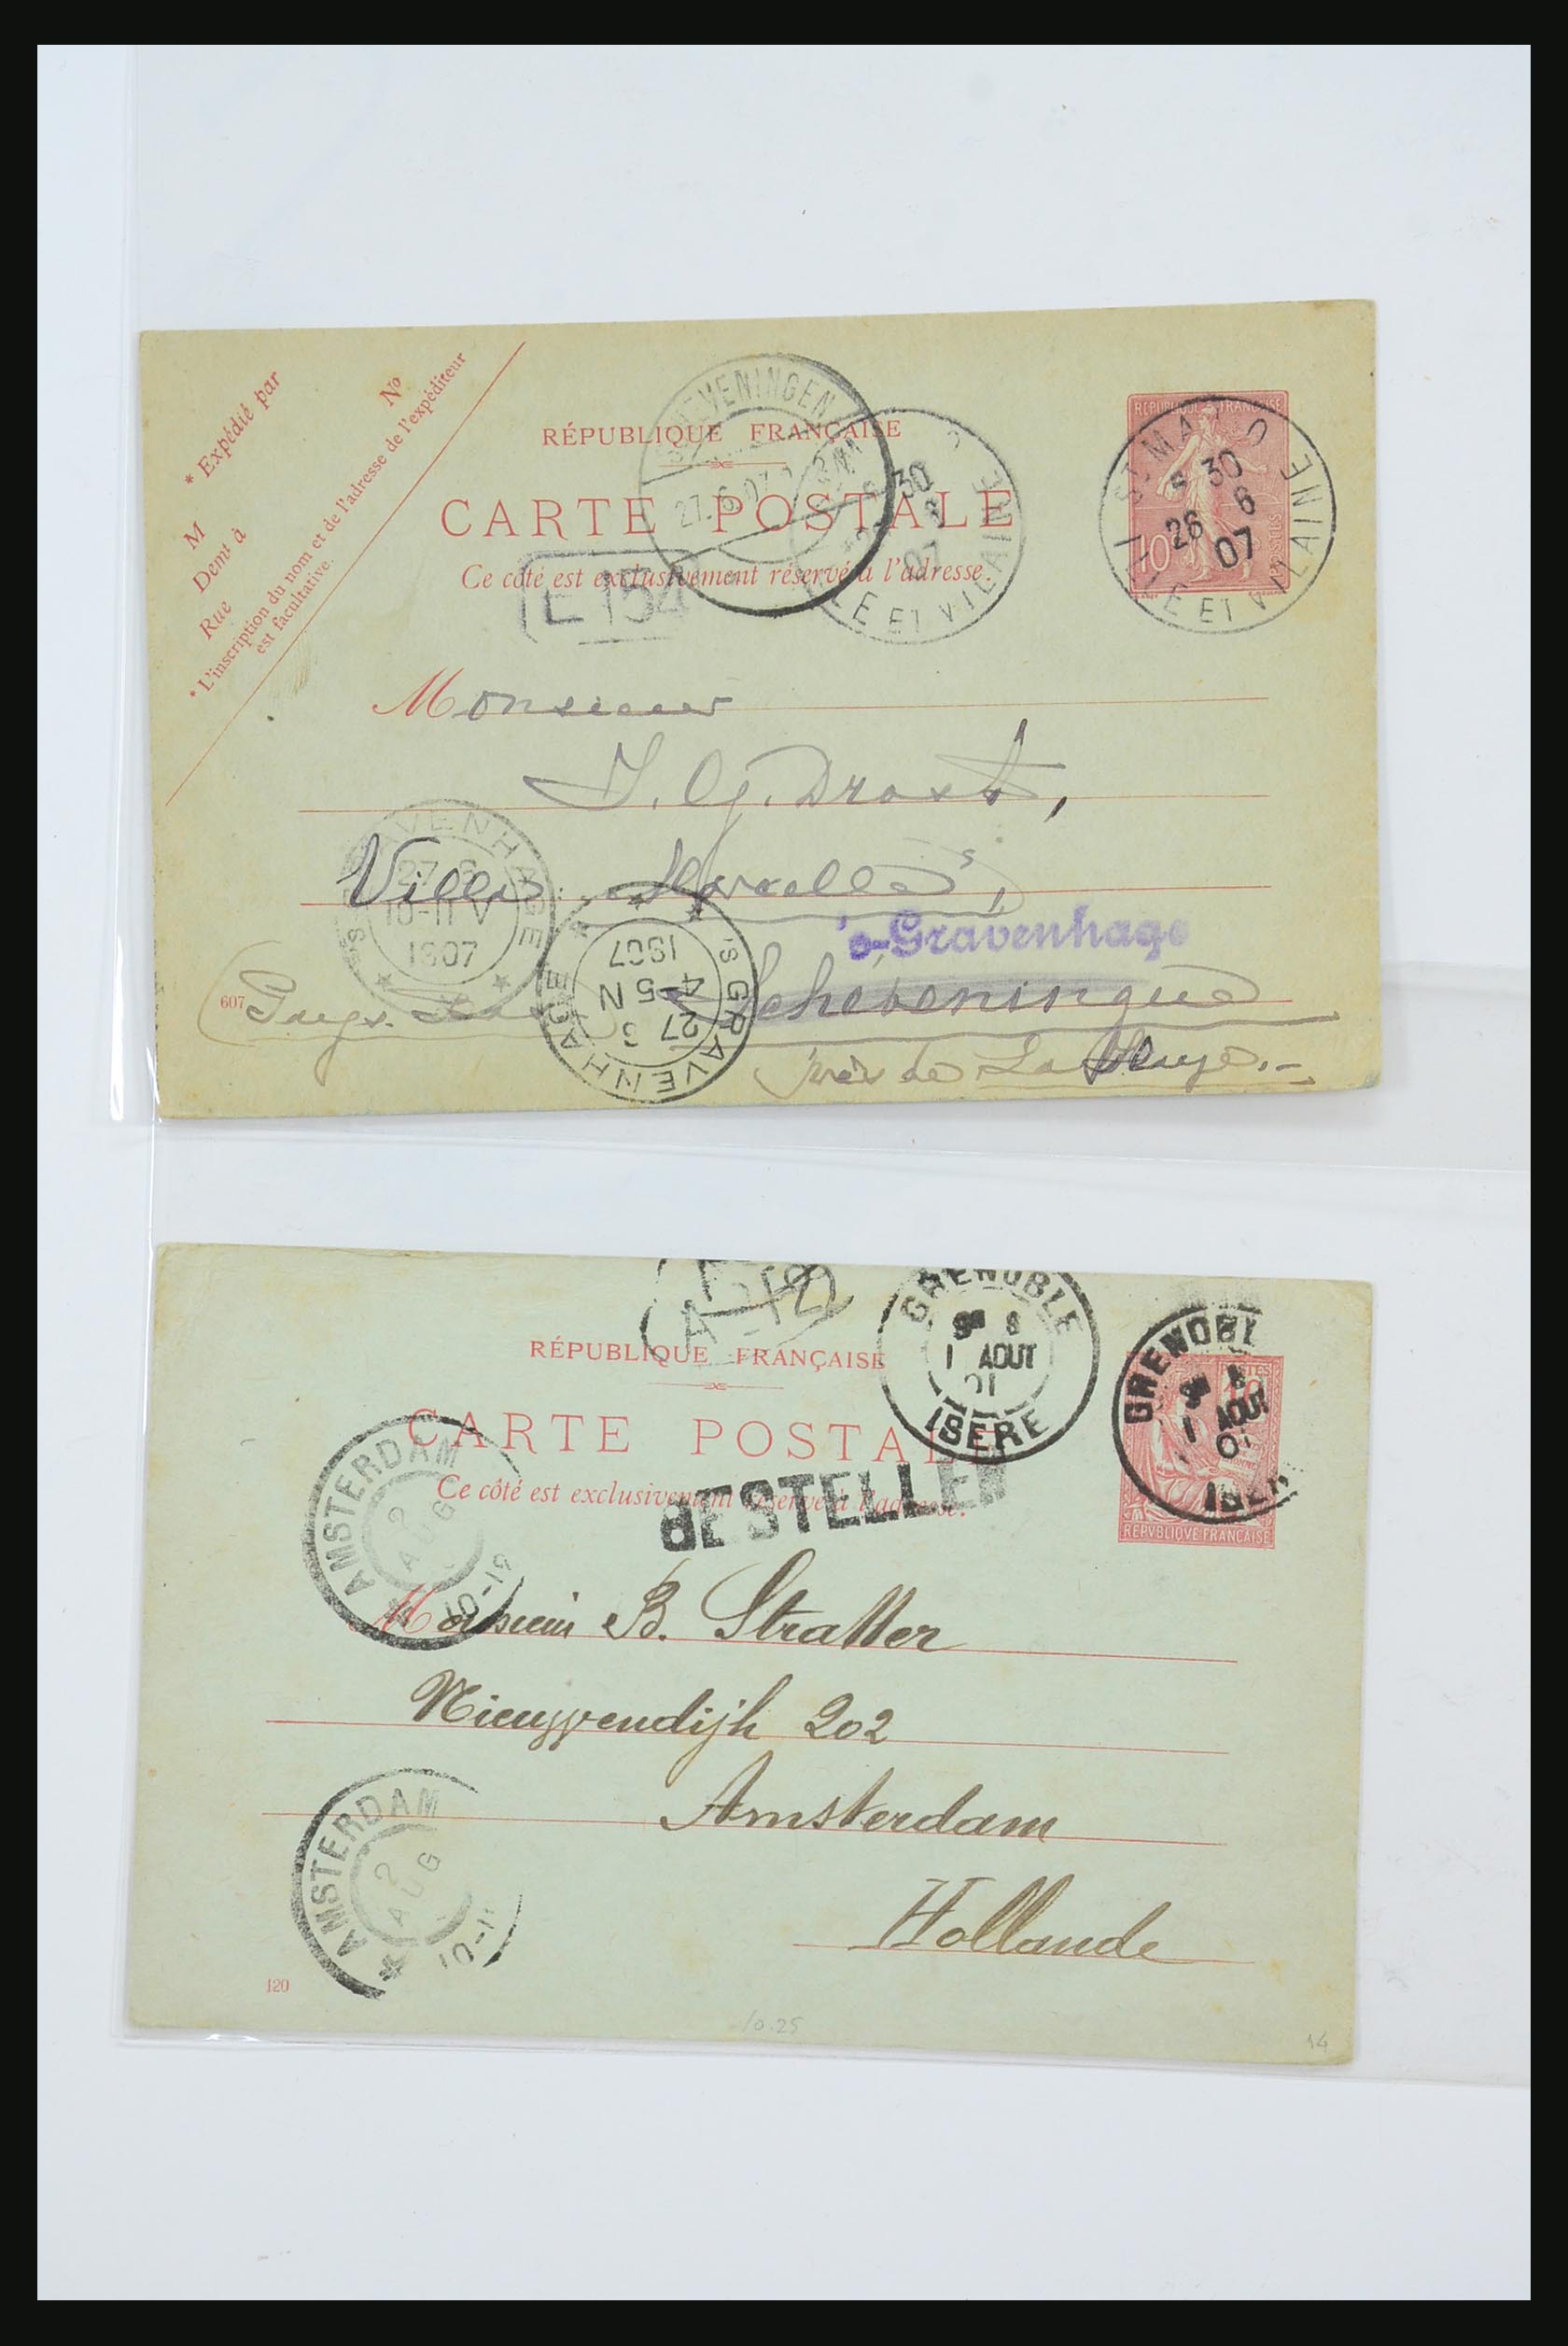 * Expédié par
No
M
Demt à
Rue
* L'inscription du nom et de l'adresse de l'expéditeur
est facultative.
RÉPUBLIQUE FRANÇAISE
CARTE POSTALE
Ce côté est exclusivement réservé à l'adresse.
REPUBLIQUE FRANÇAISE
10
POSTES
ST MALO
8 30
26 6
07
ILLE ET VILAINE
SCHEVENINGEN
27.6.07
30
07
ILLE ET VILAINE
E 154
Monsieur
J. G. Drost,
Villa:
's-Gravenhage
Pays-Bas
Schéveningue
près de La Haye.-
607
'S GRAVENHAGE
27 6
10-11 V
1907
'S GRAVENHAGE
27 6
4-5 N
1907
RÉPUBLIQUE FRANÇAISE
CARTE POSTALE
Ce côté est exclusivement réservé à l'adresse.
GRENOBLE
1 AOUT
01
ISERE
GRENOBLE
1 AOUT
ISERE
10
REPVBLIQVE FRANÇAISE
BESTELLEN
AMSTERDAM
2
AUG
AMSTERDAM
2
AUG
Monsieur B. Stratter
Nieuwendijk 202
Amsterdam
Hollande
120
10.25
14